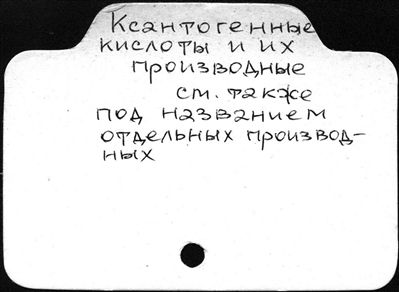 Ксантогенные
кислоты и их
производные
см. также
под названием
отдельных производ-
ных